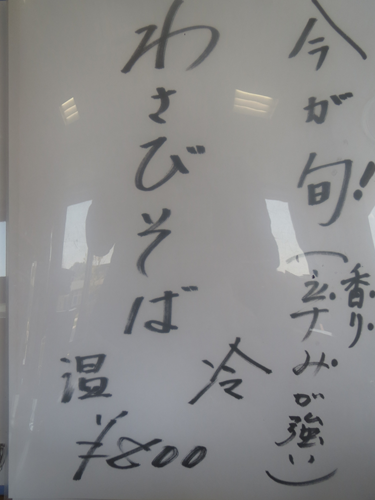 今が旬!
(香り
辛みが強い)
わさびそば
冷
温
¥800